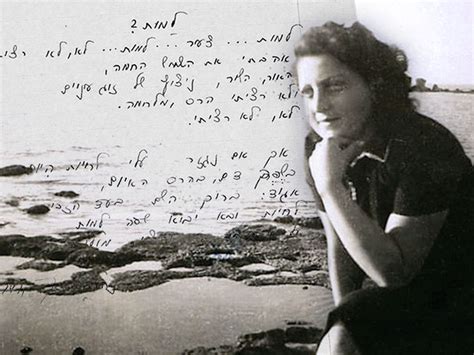 למות?
למות... צעיר... למות... לא, לא
אהבתי את השמש החמה,
האור, השיר, ניצוץ של זוג עינים
ולא רציתי הרס, ומלחמה.
לא, לא רציתי.
אך אם נגזר עלי לחיות היום
בשפך דם, בהרס האיום,
אגיד: ברוך השם בעד
לחיות ובא יבוא שעה למות